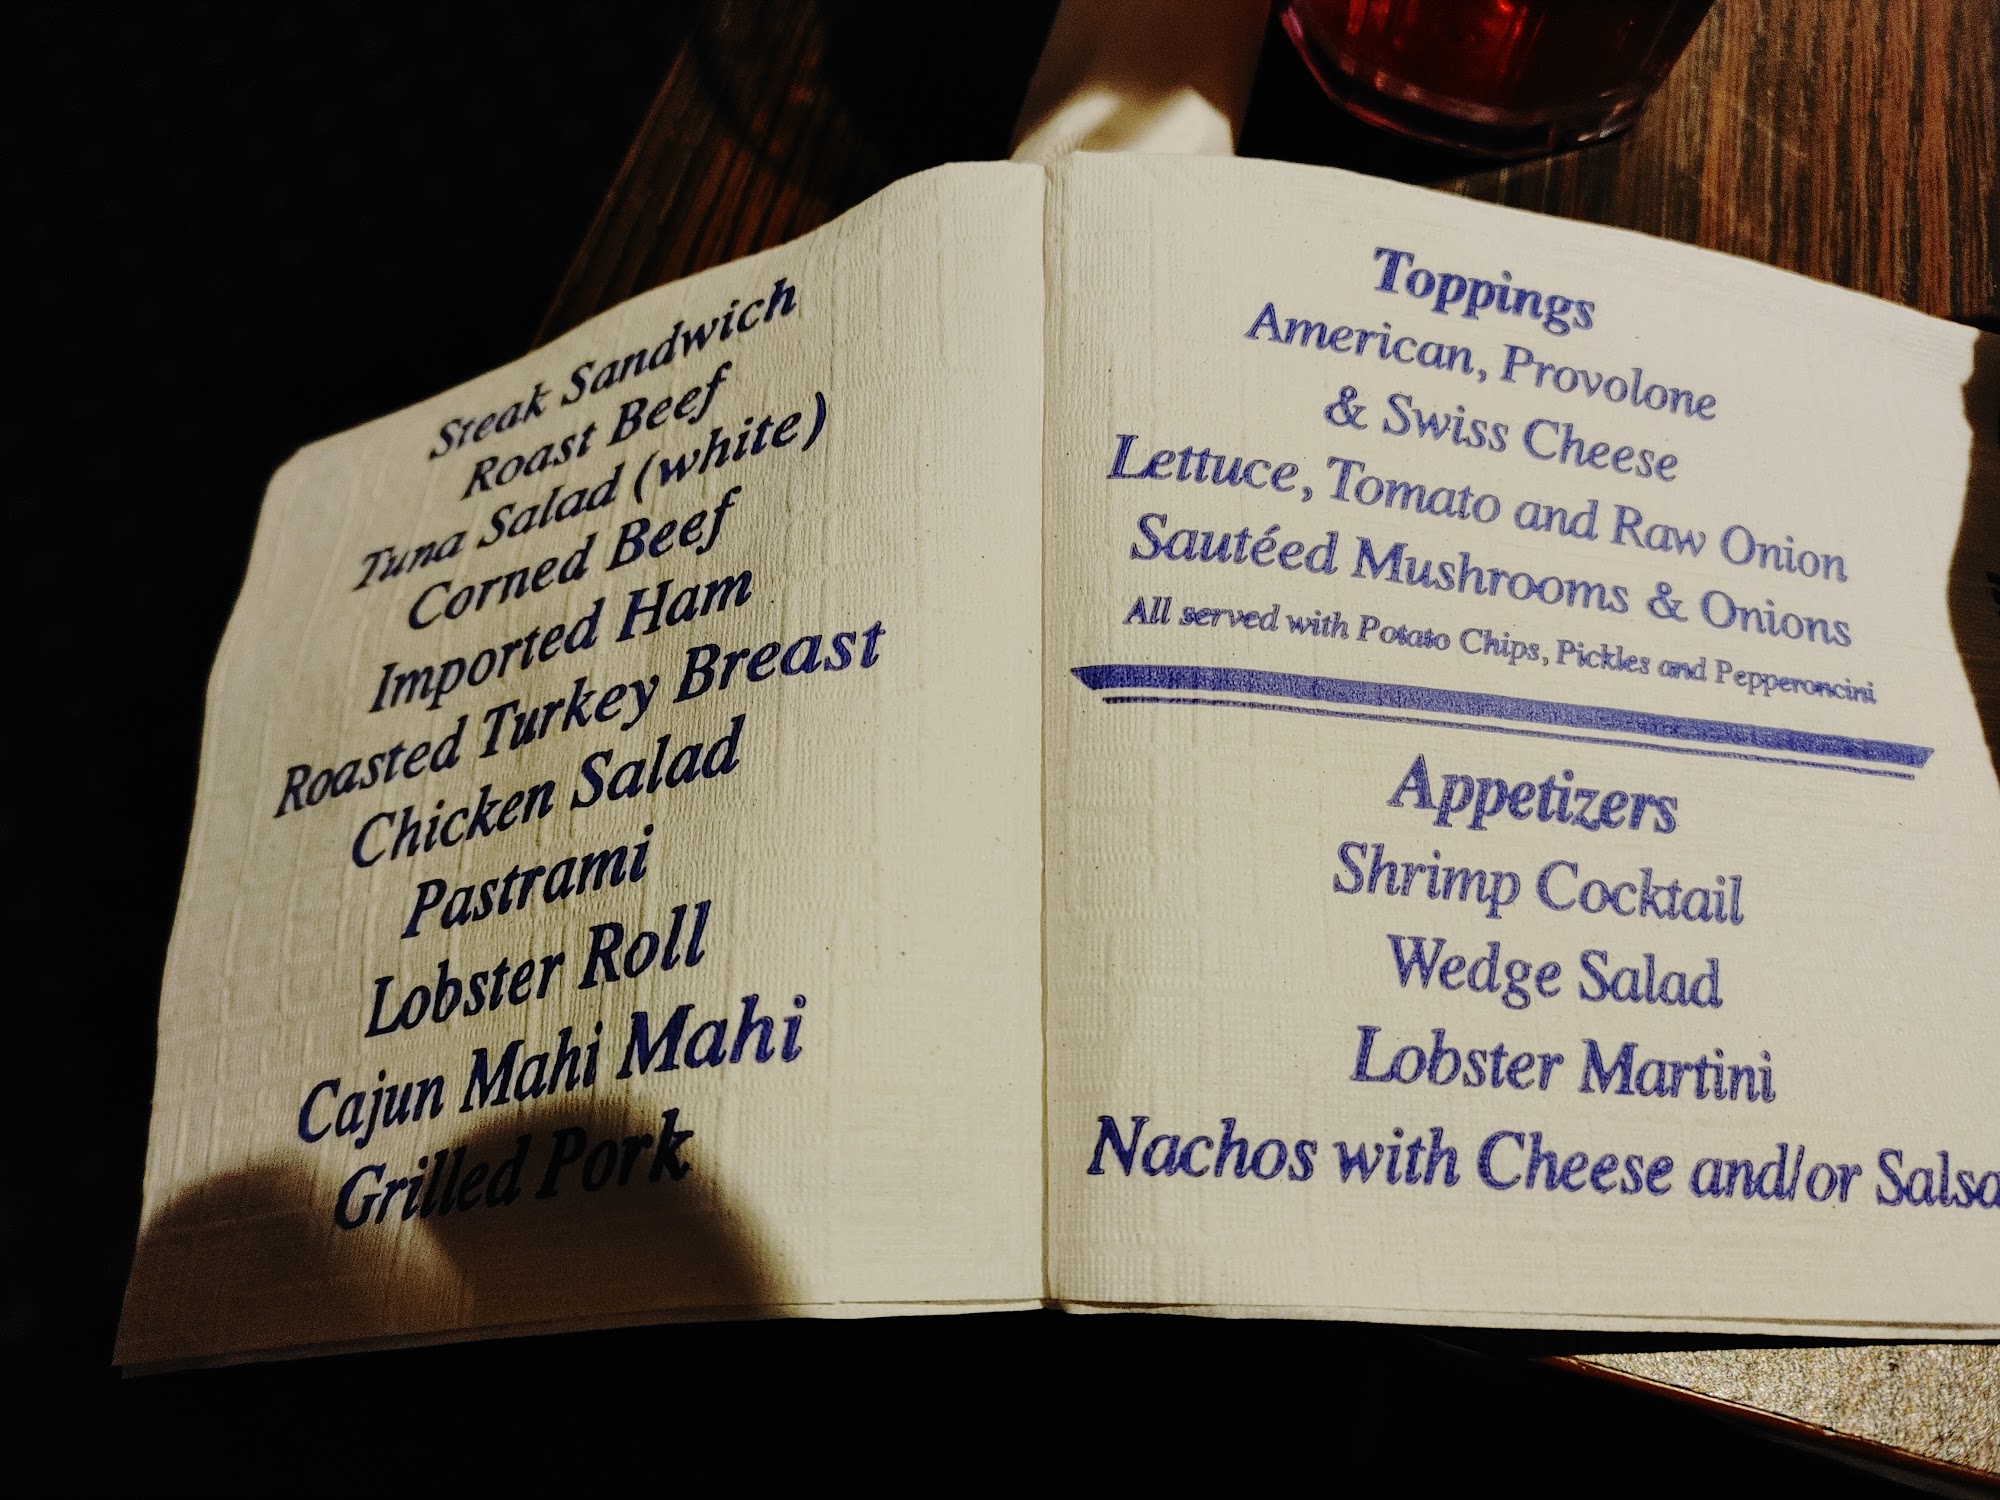 Steak Sandwich
Roast Beef
Tuna Salad (white)
Corned Beef
Imported Ham
Roasted Turkey Breast
Chicken Salad
Pastrami
Lobster Roll
Cajun Mahi Mahi
Grilled Pork
Toppings
American, Provolone
& Swiss Cheese
Lettuce, Tomato and Raw Onion
Sautéed Mushrooms & Onions
All served with Potato Chips, Pickles and Pepperoncini
Appetizers
Shrimp Cocktail
Wedge Salad
Lobster Martini
Nachos with Cheese and/or Salsa